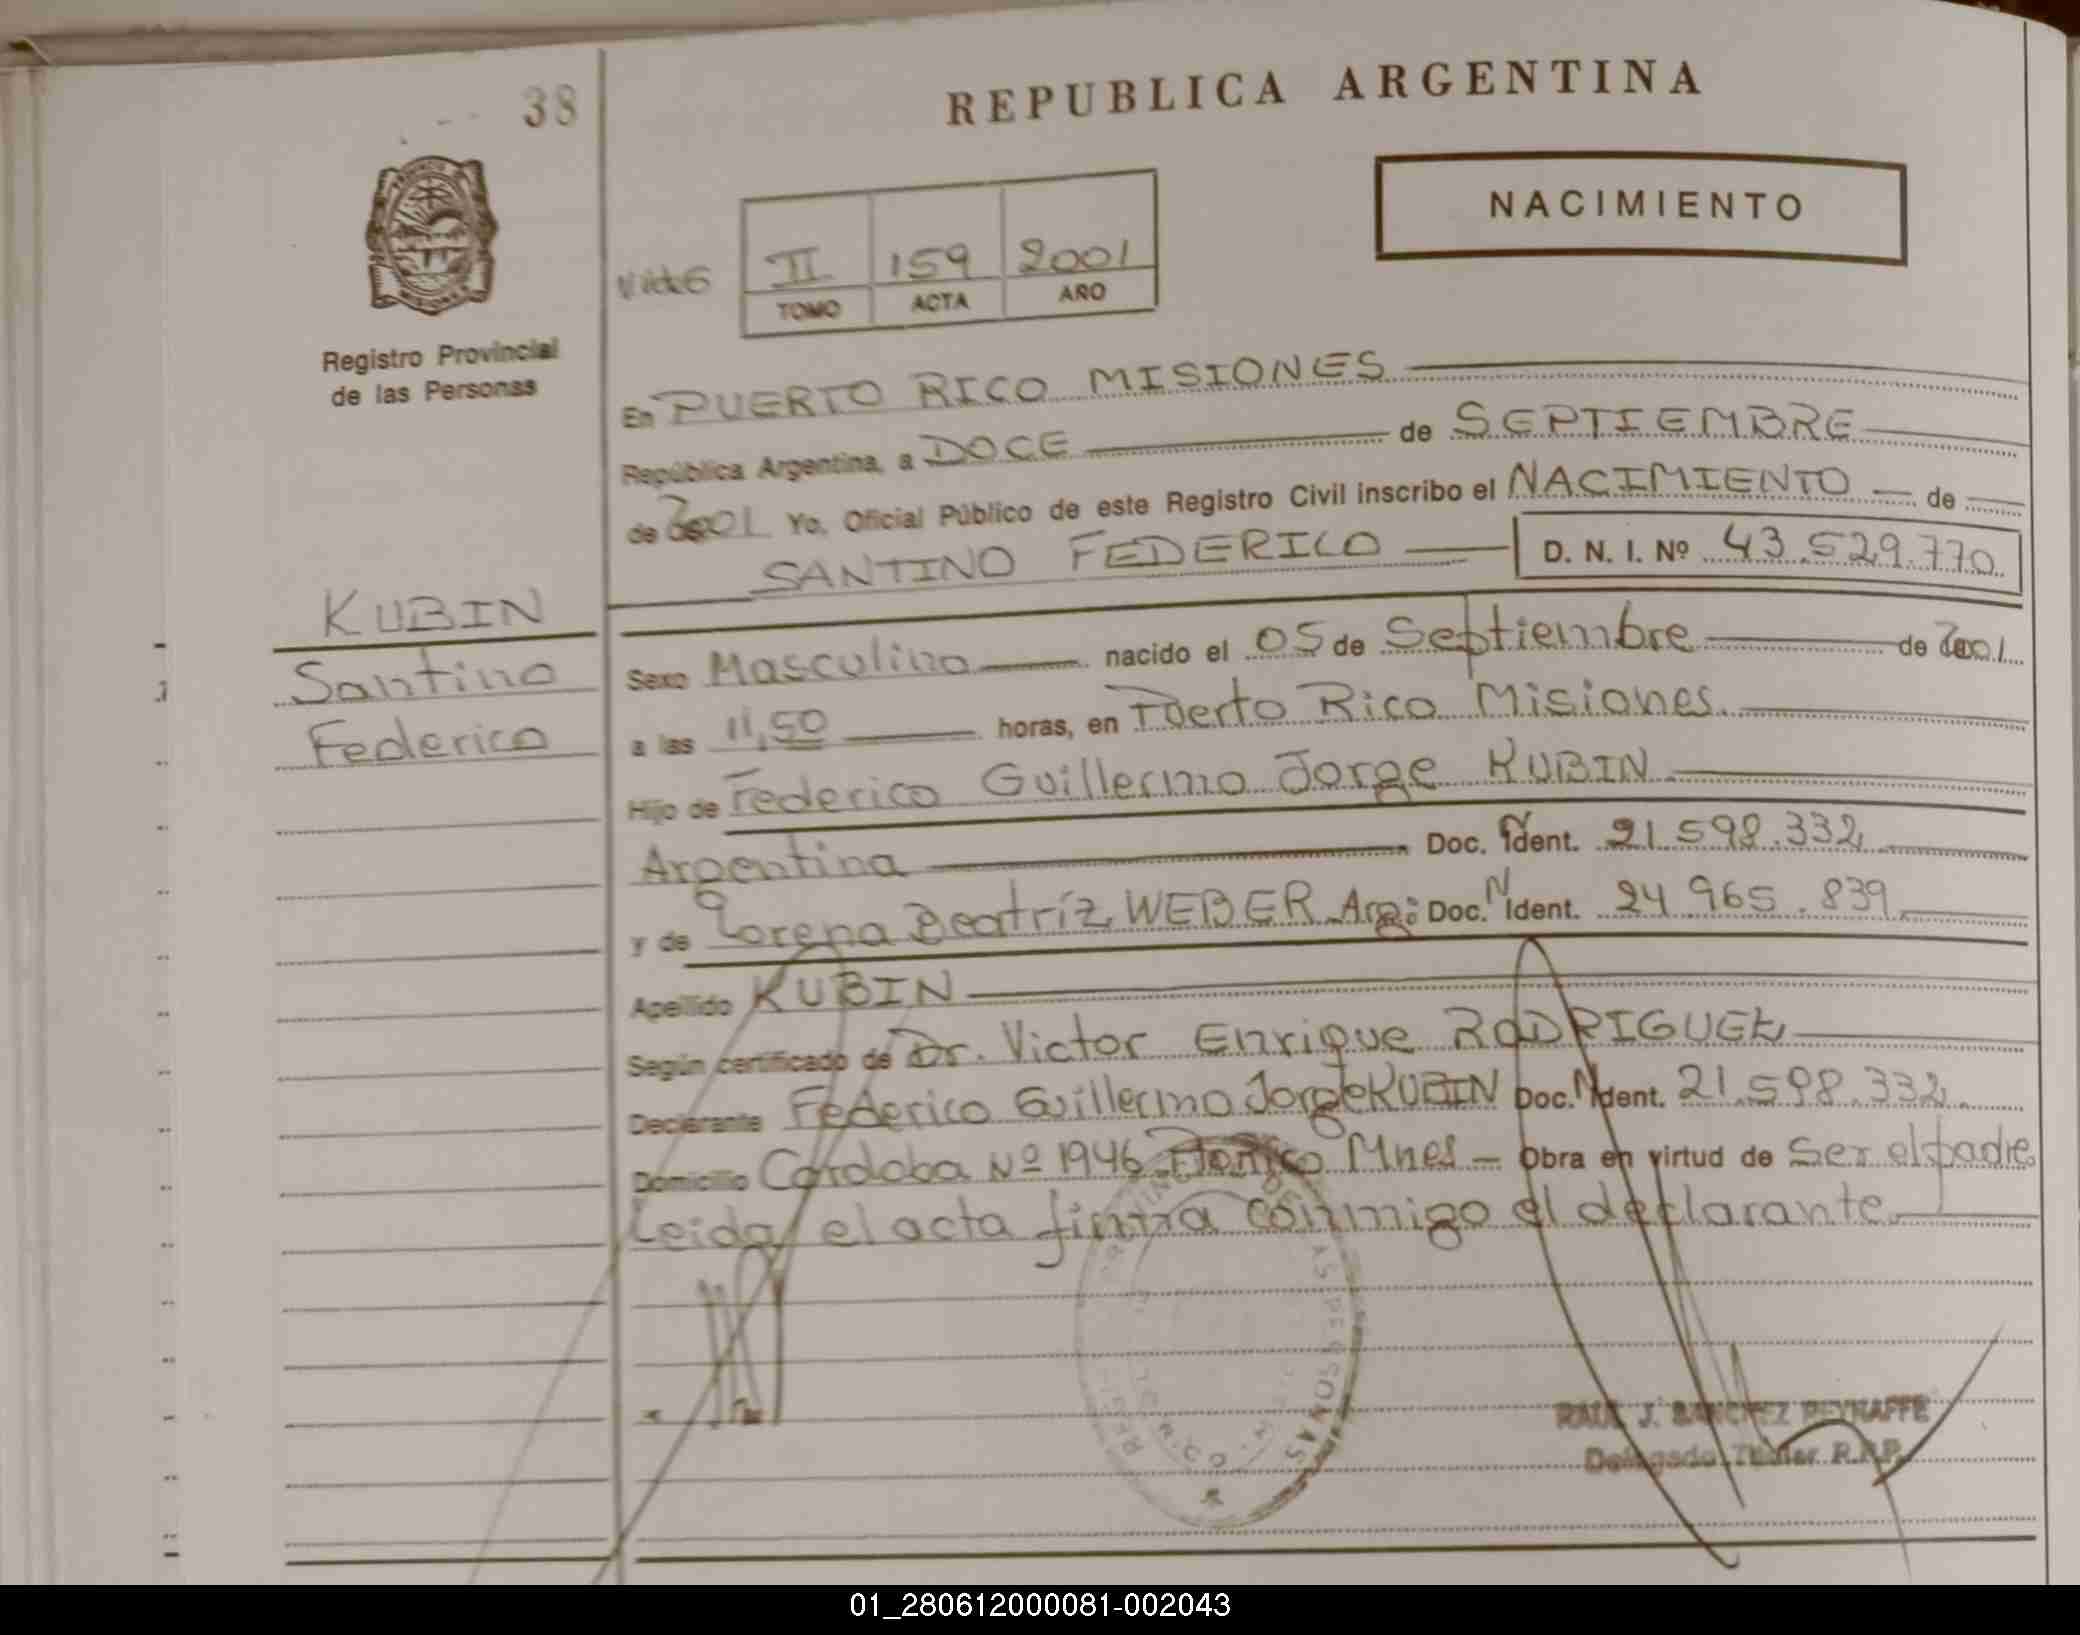 38
REPUBLICA ARGENTINA
NACIMIENTO
II 159 2001
TOMO ACTA AÑO
PROVINCIA
MISIONES
Registro Provincial
de las Personas
En PUERTO RICO MISIONES
República Argentina, a DOCE de SEPTIEMBRE
de 2001 Yo, Oficial Público de este Registro Civil inscribo el NACIMIENTO de
SANTINO FEDERICO D. N. I. Nº 43.529.770
KUBIN
Santino
Federico
Sexo Masculino nacido el 05 de Septiembre de 2001
a las 11,50 horas, en Puerto Rico Misiones.
Hijo de Federico Guillermo Jorge KUBIN
Argentina Doc. N Ident. 21.598.332
y de Lorena Beatríz WEBER Arg: Doc. N Ident. 24.965.839
Apellido KUBIN
Según certificado de Dr. Victor Enrique RODRIGUEZ
Declarante Federico Guillermo Jorge KUBIN Doc. N Ident. 21.598.332
Domicilio Cordoba Nº 1946 Mnes - Obra en virtud de Ser el padre
Leida el acta firma conmigo el declarante
RAUL J. SANCHEZ PEYRAFFE
Delegado Titular R.P.P.
01_280612000081-002043